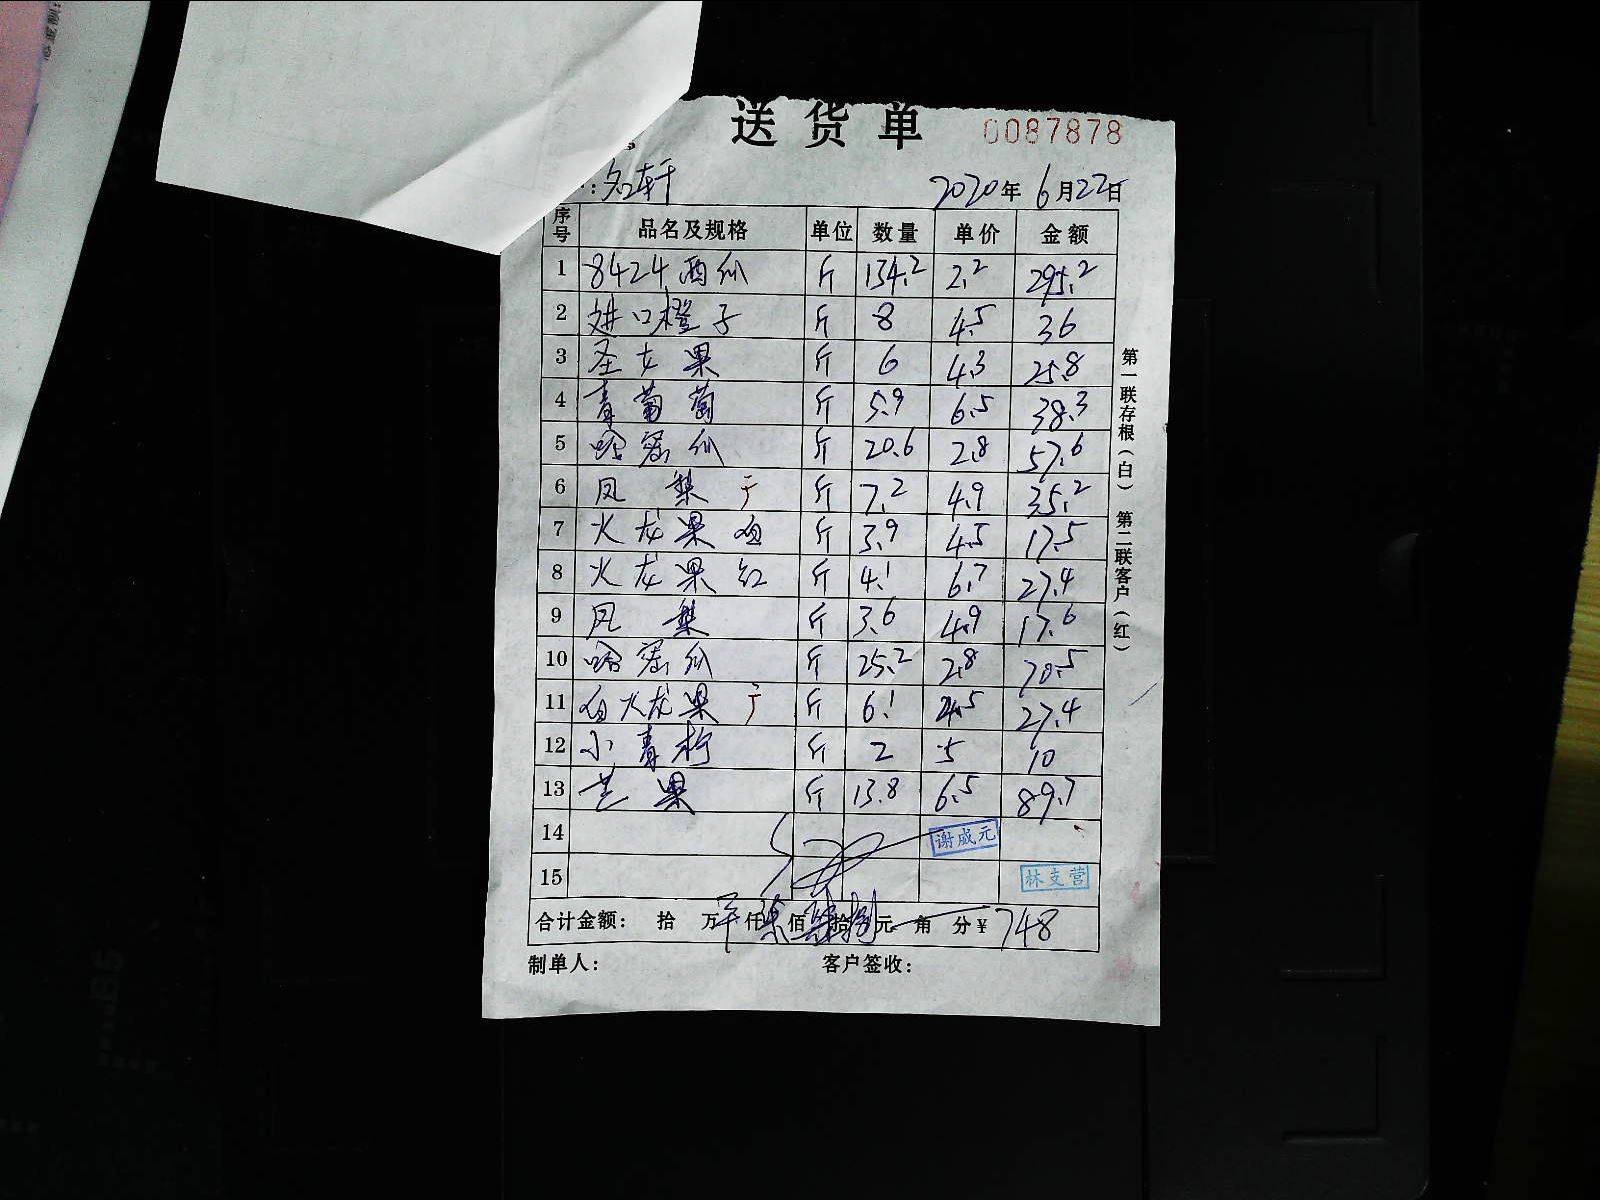 送货单 0087878
名轩 2020年6月22日
序号 品名及规格 单位 数量 单价 金额
1 8424西瓜 斤 134.2 2.2 295.2
2 进口橙子 斤 8 4.5 36
3 圣女果 斤 6 4.3 25.8
4 青葡萄 斤 5.9 6.5 38.3
5 哈密瓜 斤 20.6 2.8 57.6
6 凤梨 于 斤 7.2 4.9 35.2
7 火龙果白 斤 3.9 4.5 17.5
8 火龙果红 斤 4.1 6.7 27.4
9 凤梨 斤 3.6 4.9 17.6
10 哈密瓜 斤 25.2 2.8 70.5
11 白火龙果 于 斤 6.1 4.5 27.4
12 小青柠 斤 2 5 10
13 芒果 斤 13.8 6.5 89.7
14 谢成元
15 林支营
合计金额: 拾 万 仟柒佰肆拾捌元 角 分¥748
制单人: 客户签收:
第一联存根(白) 第二联客户(红)